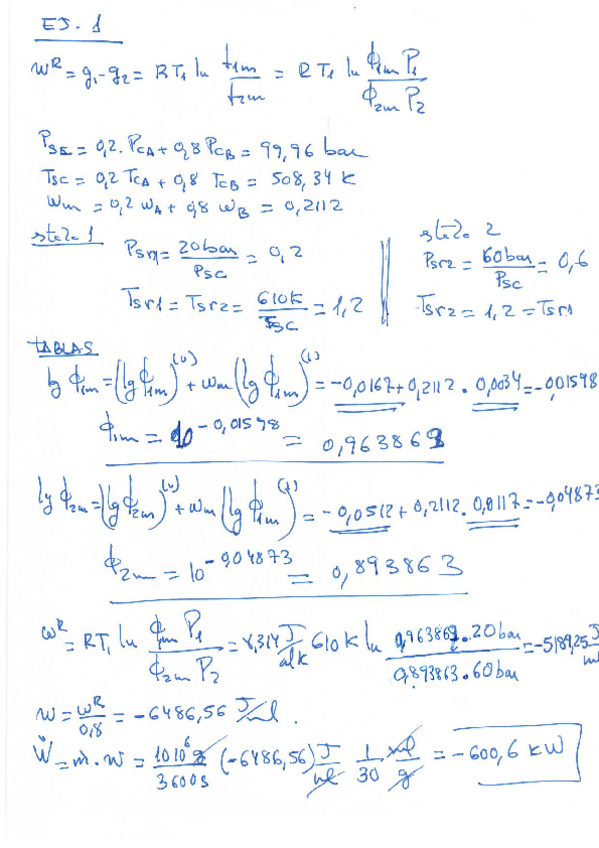 EJ. 1
w^R = g₁-g₂ = RT₁ ln f₁m/f₂m = RT₁ ln ϕ₁m P₁/ϕ₂m P₂
Psc = 0,2. PcA + 0,8 PcB = 99,96 bar
Tsc = 0,2 TcA + 0,8 TcB = 508,34 K
ωm = 0,2 ωA + 0,8 ωB = 0,2112
state 1
Psr1 = 20bar/Psc = 0,2
Tsr1 = Tsr2 = 610K/Tsc = 1,2
state 2
Psr2 = 60bar/Psc = 0,6
Tsr2 = 1,2 = Tsr1
TABLAS
lg ϕ₁m = (lg ϕ₁m)^(0) + ωm (lg ϕ₁m)^(1) = -0,0167 + 0,2112 . 0,0034 = -0,01598
ϕ₁m = 10^-0,01598 = 0,963869
lg ϕ₂m = (lg ϕ₂m)^(0) + ωm (lg ϕ₁m)^(1) = -0,0512 + 0,2112 . 0,0117 = -0,04873
ϕ₂m = 10^-0,04873 = 0,893863
w^R = RT₁ ln ϕ₁m P₁/ϕ₂m P₂ = 8,314 J/molK 610K ln 0,963869.20bar/0,893863.60bar = -5189,25 J/m
w = w^R/0,8 = -6486,56 J/mol.
Ẇ = ṁ. w = 10 10⁶ g/3600s (-6486,56) J/mol 1/30 mol/g = -600,6 kW